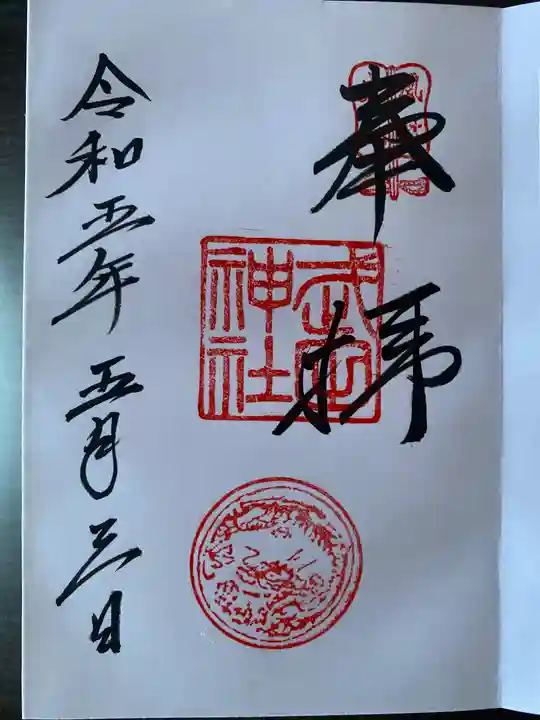 奉拝
武田神社
令和五年五月三日